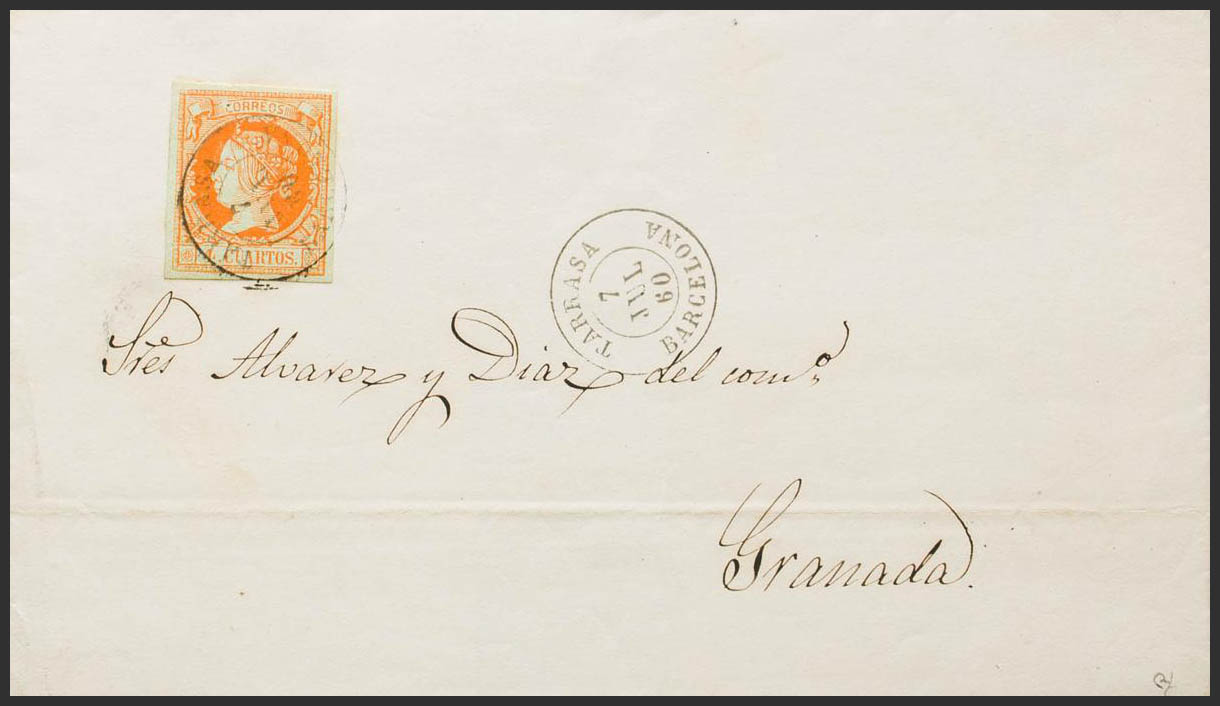 CORREOS
CUARTOS.
TARRASA
7
JUL
60
BARCELONA
Sres Alvarez y Diaz del comº
Granada.